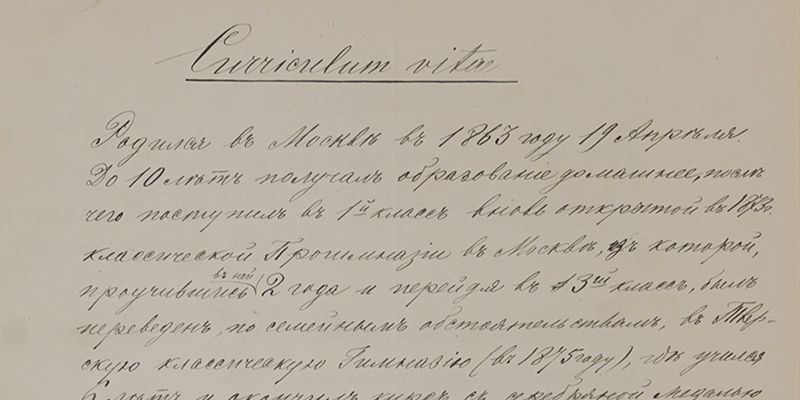 Curriculum vitae
Родился въ Москвѣ въ 1863 году 19 Апрѣля.
До 10 лѣтъ получалъ образованіе домашнее, послѣ
чего поступилъ въ 1й классъ вновь открытой въ 1873г.
классической Прогимназіи въ Москвѣ, изъ которой,
проучившись въ ней 2 года и перейдя въ 3ій классъ, былъ
переведенъ, по семейнымъ обстоятельствамъ, въ Твер-
скую классическую Гимназію (въ 1875 году), гдѣ учился
6 лѣтъ и окончилъ курсъ съ серебряной медалью